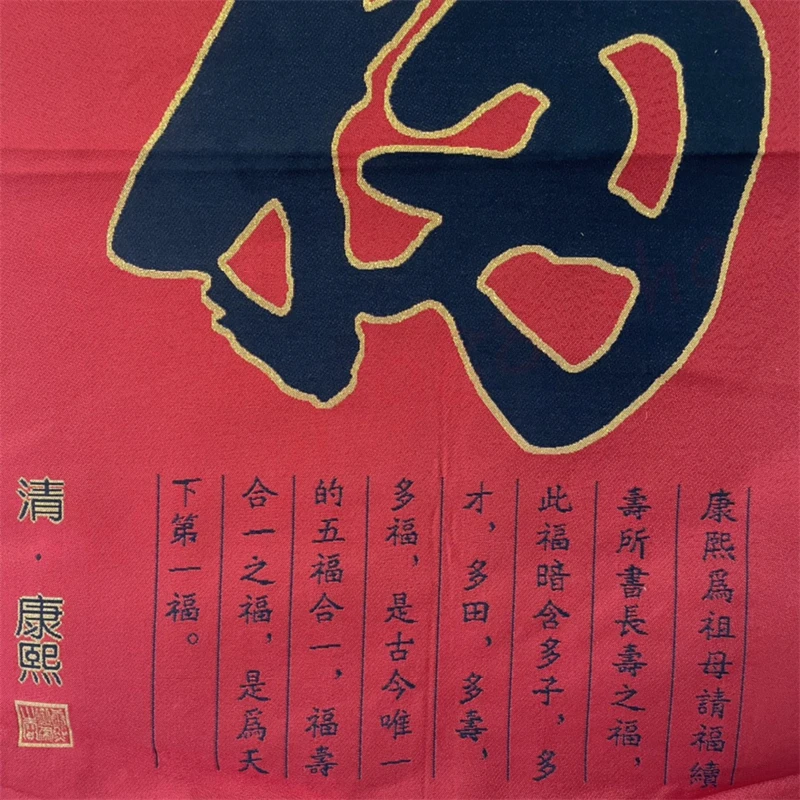 康熙爲祖母請福續
壽所書長壽之福，
此福暗含多子，多
才，多田，多壽，
多福，是古今唯一
的五福合一，福壽
合一之福，是爲天
下第一福。
清·康熙